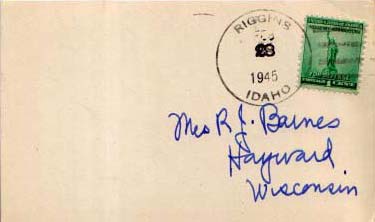 RIGGINS
28
1945
IDAHO
1 CENT
Mrs R. J. Barnes
Hayward
Wisconsin